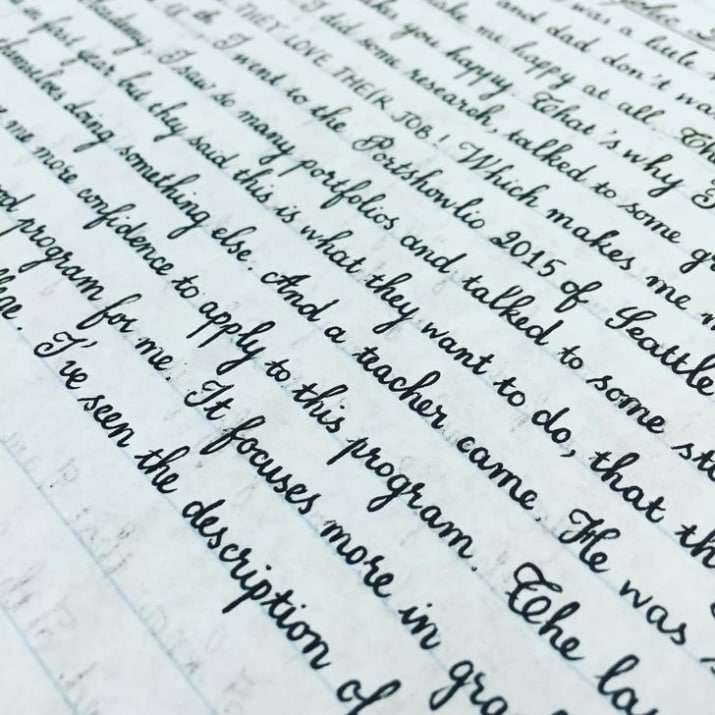 was a little
and dad don't wa
make me happy at all. Th
you happy. That's why I
I did some research, talked to some gr
THEY LOVE THEIR JOB! Which makes me m
I went to the Portshowlio 2015 of Seattle
I saw so many portfolios and talked to some stu
in last year but they said this is what they want to do, that th
themselves doing something else. And a teacher came. He was s
me more confidence to apply to this program. The la
program for me. It focuses more in gra
I've seen the description of